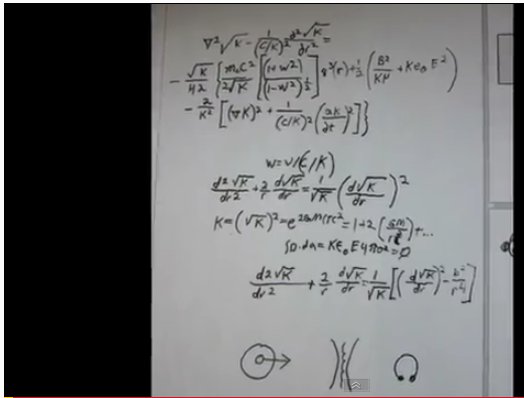 ∇²√K - 1/(C/K)² d²√K/dt² =
- √K/4λ { m₀C²/2√K [ (1+W²)/(1-W²)^½ ] δ³(r) + ½ ( B²/Kμ + Ke₀E² )
- λ/K² [ (∇K)² + 1/(C/K)² (∂K/∂t)² ] }
W = V/(C/K)
d2√K/dr² + 2/r d√K/dr = 1/√K ( d√K/dr )²
K = (√K)² = e^2GM/rc² = 1+2 ( GM/rc² ) + ...
∫D·da = Ke₀E4πr² = Q
d2√K/dr² + 2/r d√K/dr = 1/√K [ ( d√K/dr )² - b²/r⁴ ]